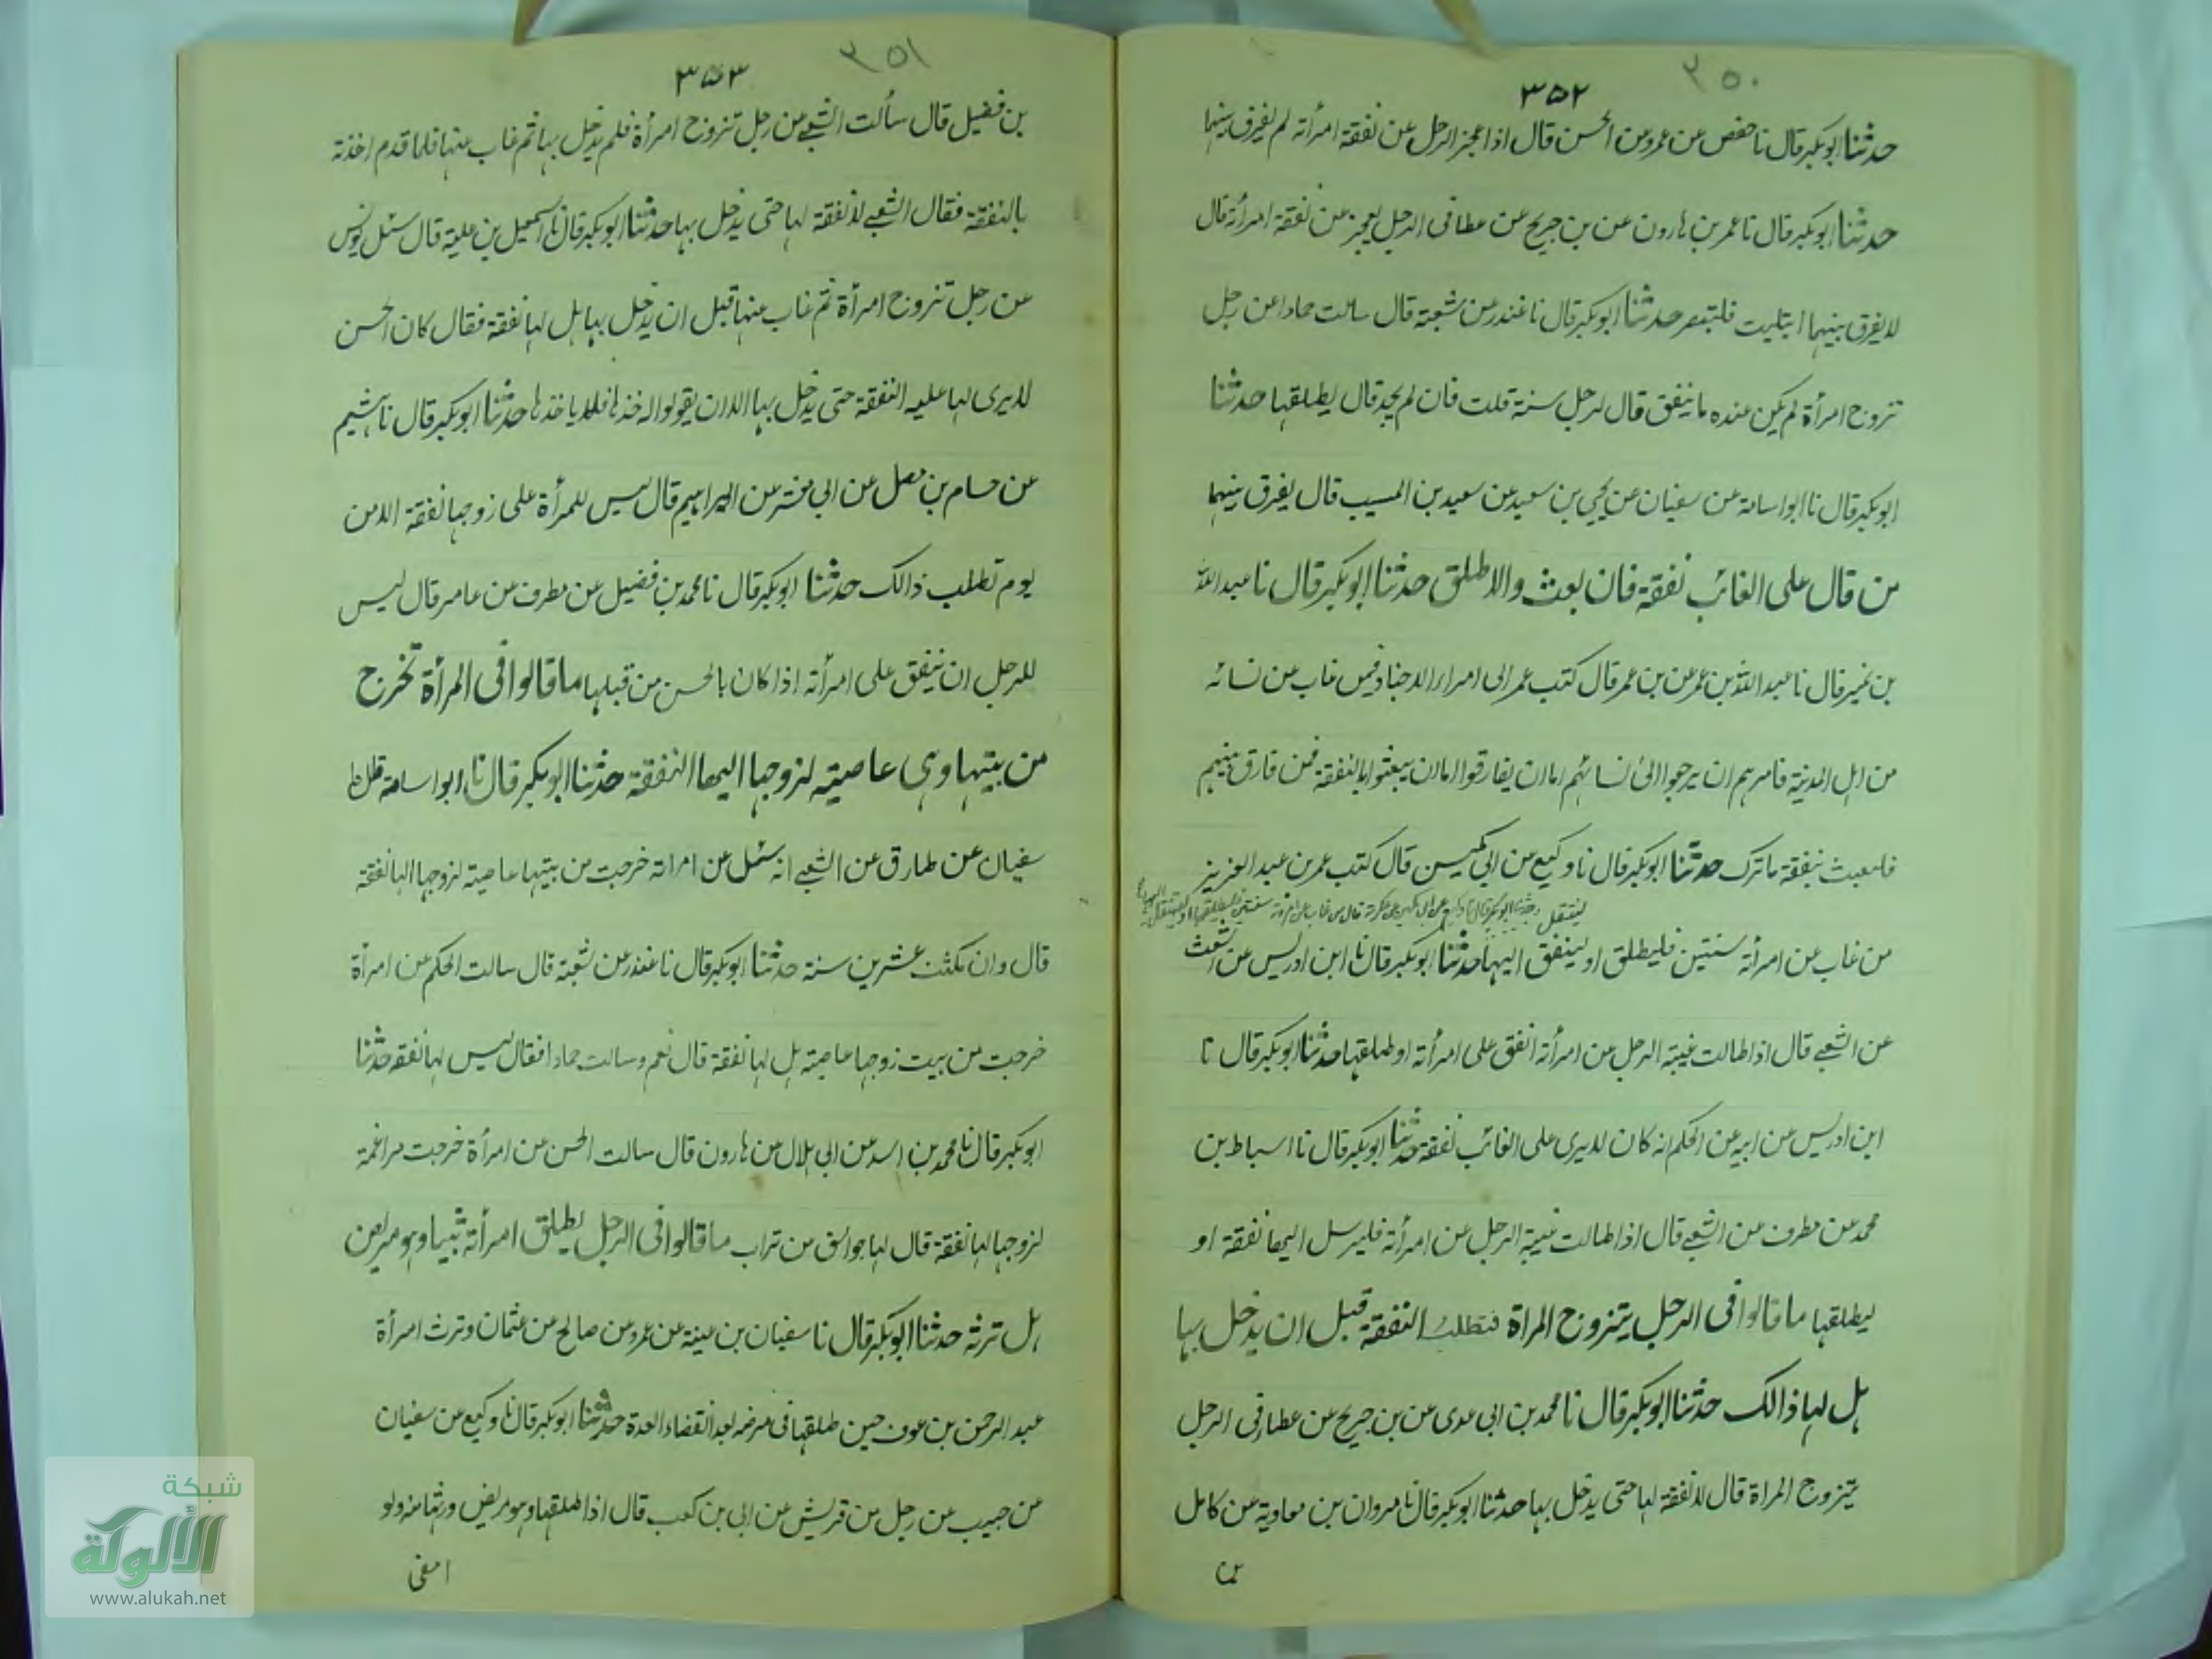 ٣٥٠
٣٥٢
حدثنا ابوبكر قال نا حفص عن عمرو عن الحسن قال اذا عجز الرجل عن نفقة امرأته لم يفرق بينهما
حدثنا ابوبكر قال نا عمر بن هارون عن بن جريج عن عطا فى الرجل يعجز عن نفقة امرأته قال
لا يفرق بينهما ابتليت فلتصبر حدثنا ابوبكر قال نا غندر عن شعبة قال سالت حمادا عن رجل
تزوج امرأة لم يكن عنده ما ينفق قال يؤجل سنة قلت فان لم يجد قال يطلقها حدثنا
ابوبكر قال نا ابو اسامة عن سفيان عن يحيى بن سعيد عن سعيد بن المسيب قال يفرق بينهما
من قال على الغائب نفقة فان بعث والا طلق حدثنا ابوبكر قال نا عبد الله
بن نمير قال نا عبد الله بن عمر عن بن عمر قال كتب عمر الى امراء الاجناد فيمن غاب عن نسائه
من اهل المدينة فامرهم ان يرجعوا الى نسائهم اما ان يفارقوا اما ان يبعثوا بالنفقة فمن فارق منهم
فليبعث بنفقة ما ترك حدثنا ابوبكر قال نا وكيع عن ابى مكين قال كتب عمر بن عبد العزيز
من غاب عن امرأته سنتين فليطلق او لينفق اليها حدثنا ابوبكر قال نا ابن ادريس عن اشعث
عن الشعبى قال اذا طالت غيبة الرجل عن امرأته انفق على امرأته او طلقها حدثنا ابوبكر قال نا
ابن ادريس عن ابيه عن الحكم انه كان لا يرى على الغائب نفقة حدثنا ابوبكر قال نا اسباط بن
محمد عن مطرف عن الشعبى قال اذا طالت غيبة الرجل عن امرأته فليرسل اليها نفقة او
ليطلقها ما قالوا فى الرجل يتزوج المراة فتطلب النفقة قبل ان يدخل بها
هل لها ذالك حدثنا ابوبكر قال نا محمد بن ابى عدى عن بن جريج عن عطا فى الرجل
يتزوج المراة قال لا نفقة لها حتى يدخل بها حدثنا ابوبكر قال نا مروان بن معاوية عن كامل
٣٥١
٣٥٣
بن فضيل قال سألت الشعبى عن رجل تزوج امرأة فلم يدخل بها ثم غاب عنها فلما قدم اخذته
بالنفقة فقال الشعبى لا نفقة لها حتى يدخل بها حدثنا ابوبكر قال نا اسمعيل بن علية قال سئل يونس
عن رجل تزوج امرأة ثم غاب عنها قبل ان يدخل بها هل لها نفقة فقال كان الحسن
لا يرى لها عليه النفقة حتى يدخل بها الا ان يقولوا له خذها فلا ياخذها حدثنا ابوبكر قال نا هشيم
عن حسام بن مصل عن ابى معشر عن ابراهيم قال ليس للمرأة على زوجها نفقة الا من
يوم تطلب ذالك حدثنا ابوبكر قال نا محمد بن فضيل عن مطرف عن عامر قال ليس
للرجل ان ينفق على امرأته اذا كان بالحسن من قبلها ما قالوا فى المرأة تخرج
من بيتها وهى عاصية لزوجها اليها النفقة حدثنا ابوبكر قال نا ابو اسامة
سفيان عن طارق عن الشعبى انه سئل عن امراة خرجت من بيتها عاصية لزوجها الها نفقة
قال وان مكثت عشرين سنة حدثنا ابوبكر قال نا غندر عن شعبة قال سالت الحكم عن امرأة
خرجت من بيت زوجها عاصية هل لها نفقة قال نعم وسالت حمادا فقال ليس لها نفقة حدثنا
ابوبكر قال نا محمد بن اسد عن ابى هلال عن هارون قال سالت الحسن عن امرأة خرجت مراغمة
لزوجها الها نفقة قال لها جوالق من تراب ما قالوا فى الرجل يطلق امرأته ثيبا وهو مريض
هل ترثه حدثنا ابوبكر قال نا سفيان بن عيينة عن عمرو عن صالح عن عثمان ورث امرأة
عبد الرحمن بن عوف حين طلقها فى مرضه بعد انقضاء العدة حدثنا ابوبكر قال نا وكيع عن سفيان
عن حبيب عن رجل من قريش عن ابى بن كعب قال اذا طلقها وهو مريض ورثتها منه ولو
شبكة
الألوكة
www.alukah.net